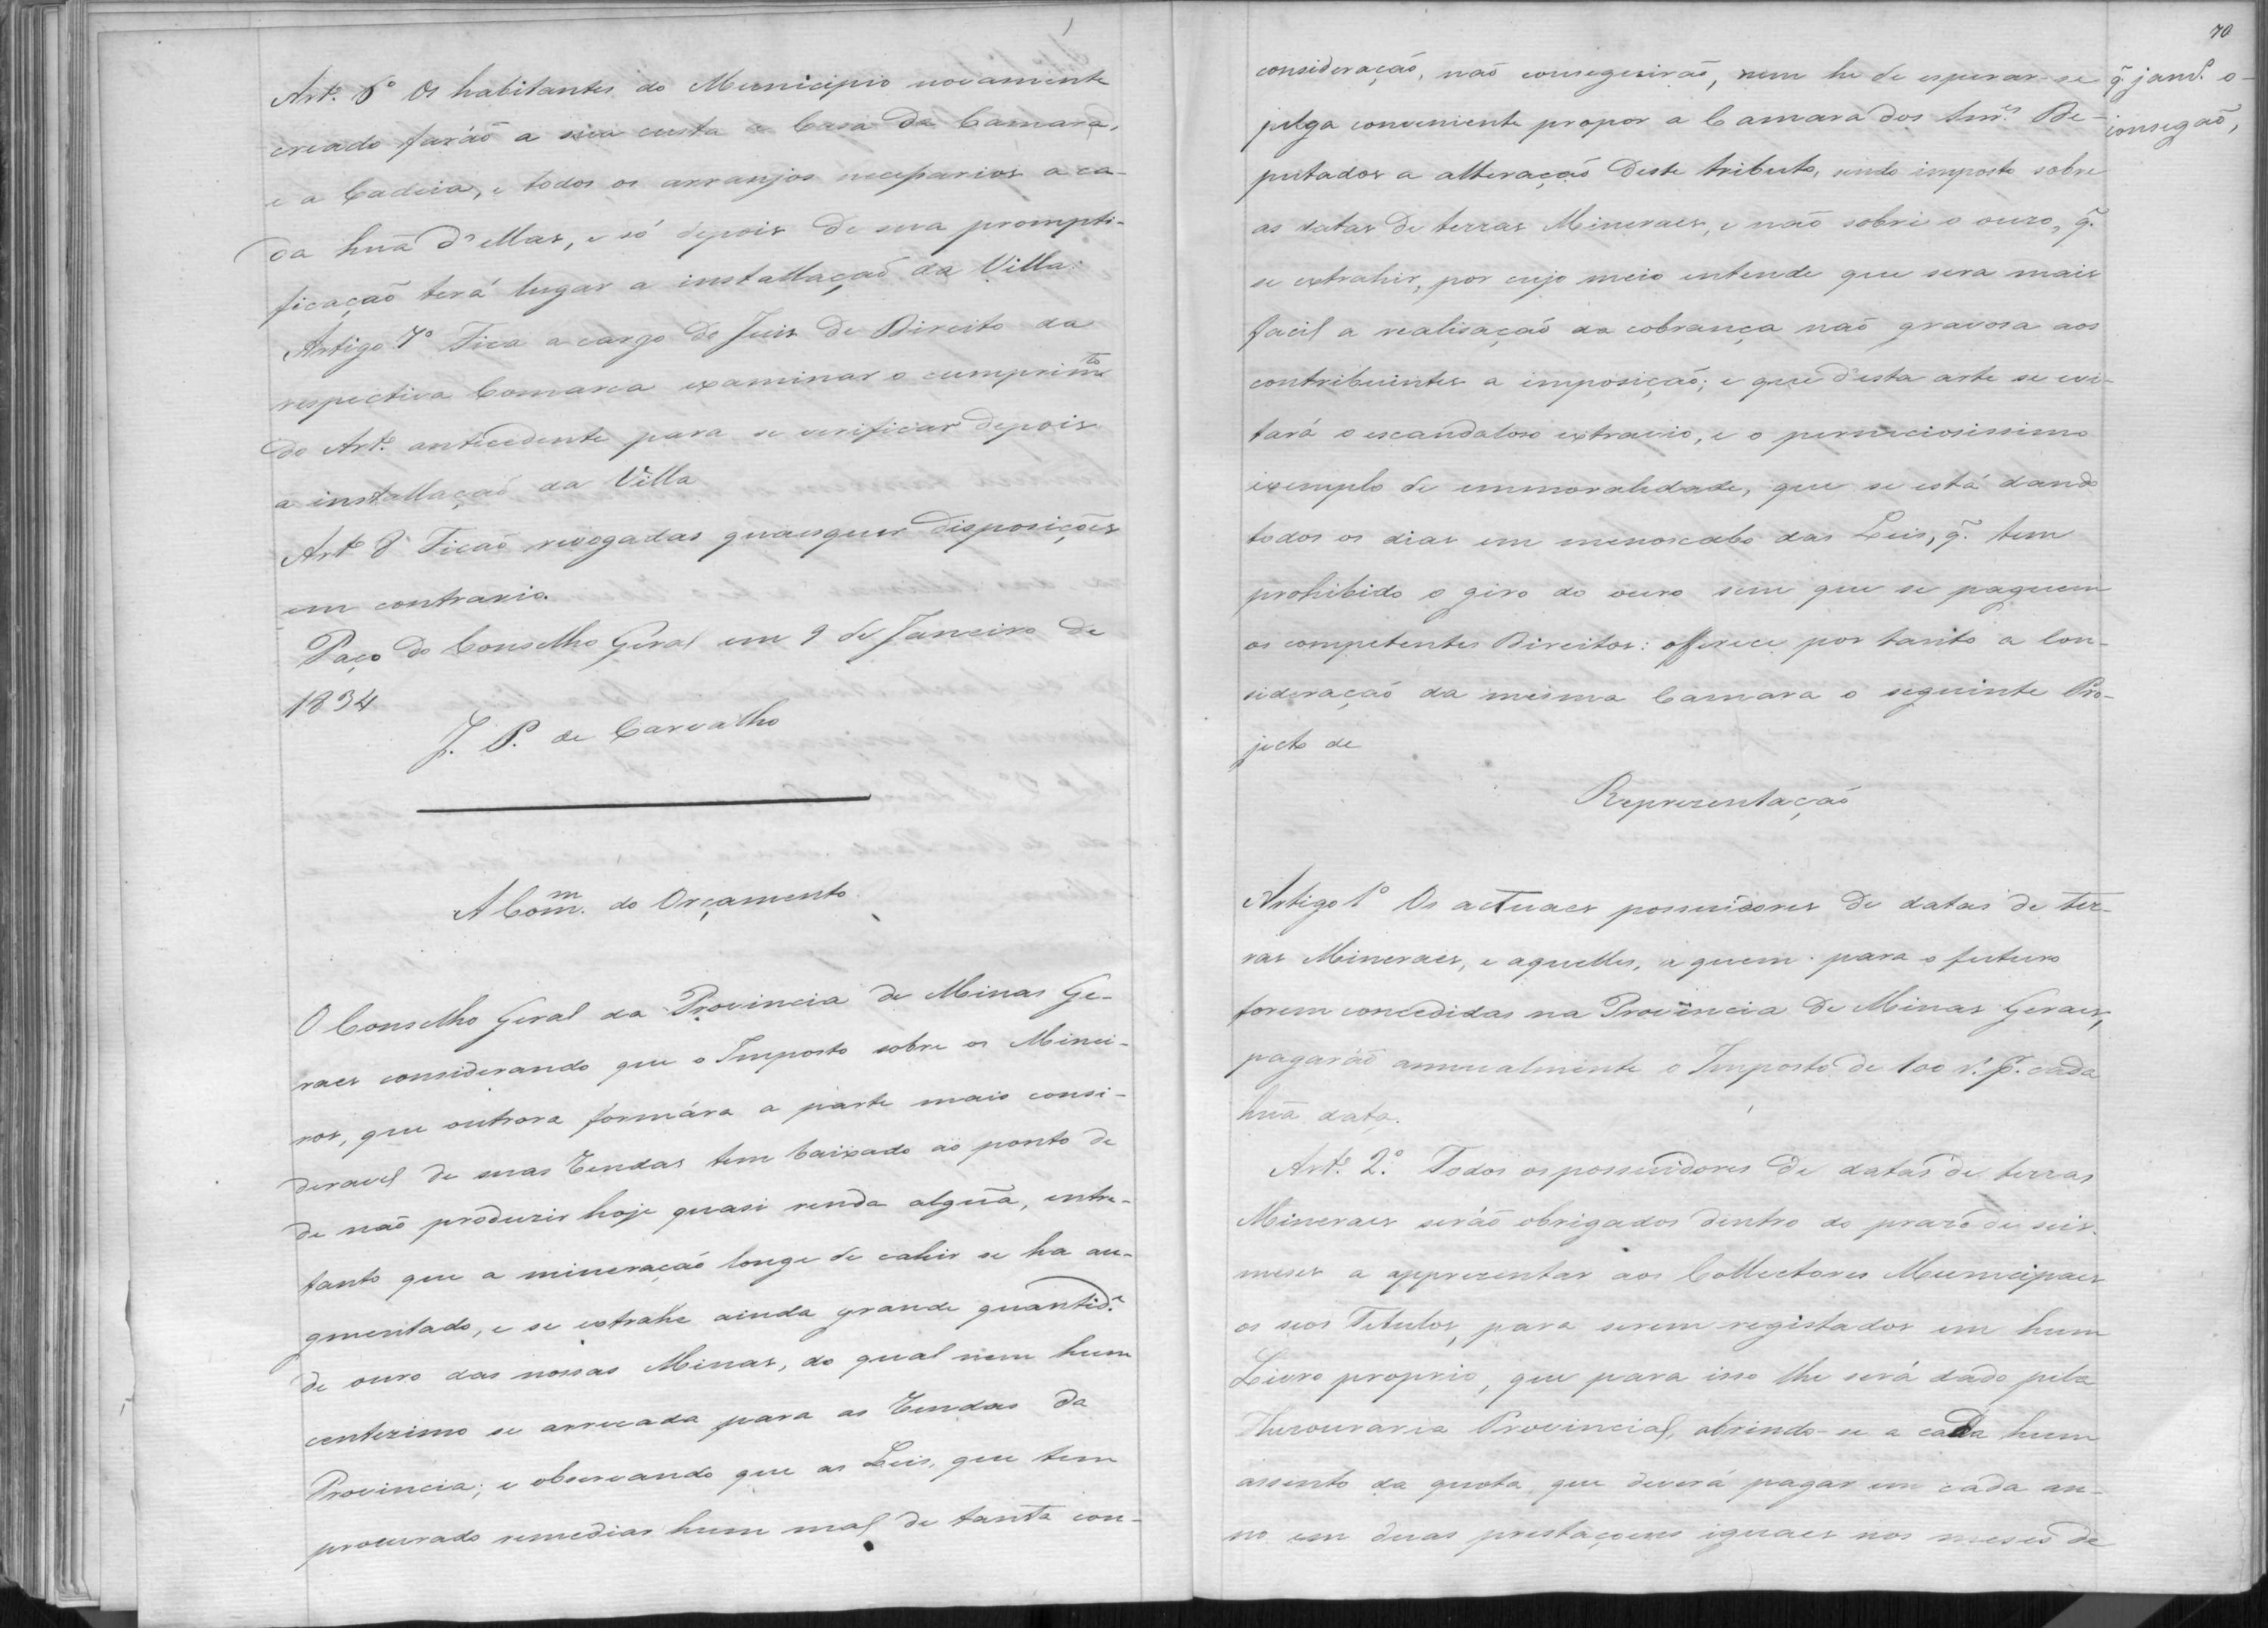 Art.º 6º Os habitantes do Municipio novamente
creado farão a sua custa a Casa da Camara,
e a Cadeia, e todos os arranjos necessarios a ca-
da huã d'ellas, e só depois de sua prompti-
ficação terá lugar a installação da Villa.
Artigo 7º Fica a cargo do Juis de Direito da
respectiva Comarca examinar o cumprim.to
do Art.º antecedente para se verificar depois
a installação da Villa
Art.º 8º Ficão revogadas quaesquer disposições
em contrario.
Paço do Conselho Geral em 9 de Janeiro de
1834
J. P. de Carvalho
A Com.m do Orçamento
O Conselho Geral da Provincia de Minas Ge-
raes considerando que o Imposto sobre os Minei-
ros, que outrora formára a parte mais consi-
deravel de suas Rendas tem baixado ao ponto de
de não produzir hoje quasi renda alguã, entre-
tanto que a mineração longe de cahir se ha au-
gmentado, e se extrahe ainda grande quantid.e
de ouro das nossas Minas, do qual nem hum
centezimo se arrecada para as Rendas da
Provincia; e observando que as Leis, que tem
procurado remediar hum mal de tanta con-
70
consideração, não conseguirão, nem he de esperar-se q̃ jam.s o
julga conveniente propor a Camara dos Snr.es De- consegão,
putados a alteração deste tributo, sendo imposto sobre
as datas de terras Mineraes, e não sobre o ouro, q̃.
se extrahir, por cujo meio entende que sera mais
facil a realisação da cobrança não gravosa aos
contribuintes a imposição; e que d'esta arte se evi-
tará o escandaloso extravio, e o perniciosissimo
exemplo de immoralidade, que se está dando
todos os dias em menoscabo das Leis, q̃. tem
prohibido o giro do ouro sem que se paguem
os competentes Direitos: offerece por tanto a Con-
sideração da mesma Camara o seguinte Pro-
jecto de
Reprezentação
Artigo 1º Os actuaes possuidores de datas de ter-
ras Mineraes, e aquelles, a quem para o futuro
forem concedidas na Provincia de Minas Geraes,
pagarão annualmente o Imposto de 100 r.s p. cada
huã data.
Art.º 2.º Todos os possuidores de datas de terras
Mineraes serão obrigados dentro do prazo de seis
meses a apprezentar aos Collectores Municipaes
os seos Titulos, para serem registados em hum
Livro proprio, que para isso lhe será dado pela
Thezouraria Provincial, abrindo-se a cada hum
assento da quota, que deverá pagar em cada an-
no em duas prestaçoens iguaes nos meses de